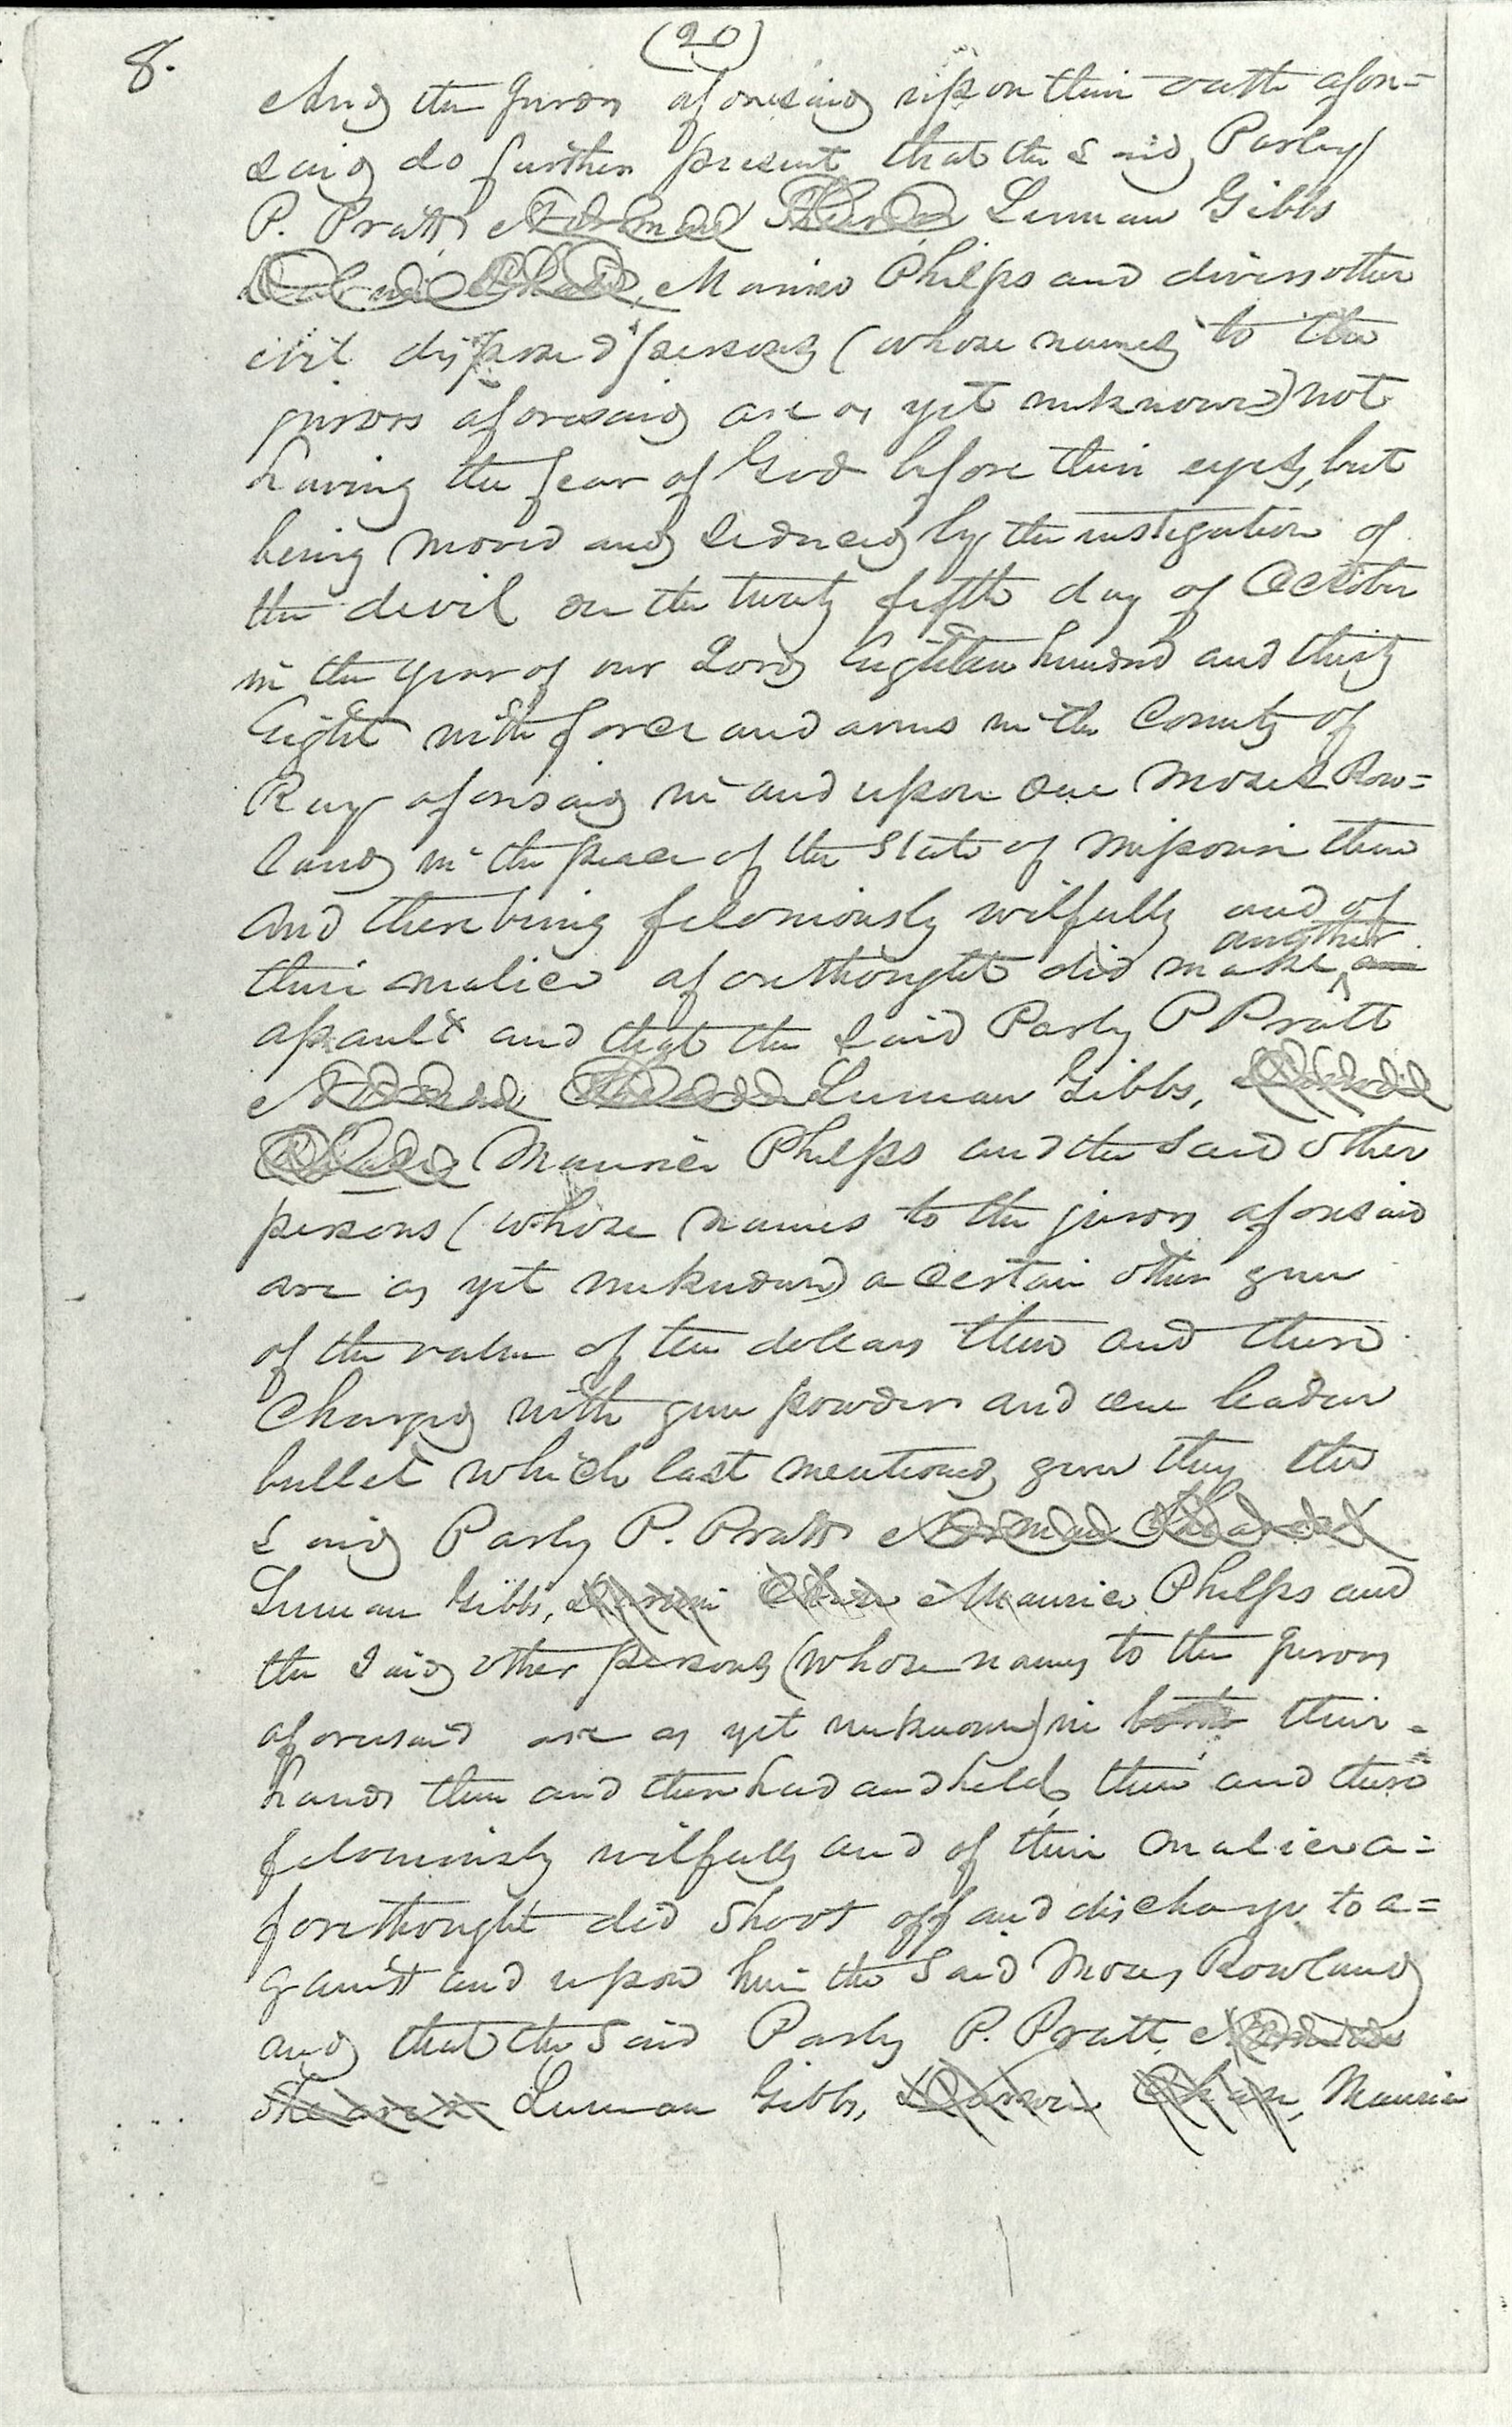 (20)
8.
And the jurors aforesaid upon their oath afore=
said do further present that the said Parley
P. Pratt, Norman Shearer Luman Gibbs
Darwin Chase, Maurice Phelps and divers other
evil disposed persons (whose names to the
jurors aforesaid are as yet unknown) not
having the fear of God before their eyes, but
being moved and seduced by the instigation of
the devil on the twenty fifth day of October
in the year of our Lord Eighteen hundred and thirty
Eight with force and arms in the County of
Ray aforesaid in and upon one Moses Row=
land in the peace of the State of Missouri then
and there being feloniously wilfully and of
another
their malice aforethought did make an
assault and that the said Parly P Pratt
Norman Shearer Luman Gibbs, Darwin
Chase Maurice Phelps and the said other
persons (whose names to the jurors aforesaid
are as yet unknown) a certain other gun
of the value of ten dollars then and there
charged with gun powder and one leaden
bullet which last mentioned gun they the
said Parly P. Pratt Norman Shearer
Luman Gibbs, Darwin Chase Maurice Phelps and
the said other persons (whose names to the jurors
aforesaid are as yet unknown) in both their
hands then and there had and held, then and there
feloniously wilfully and of their malice a=
forethought did shoot off and discharge to a=
gainst and upon him the said Moses Rowland
and that the said Parly P. Pratt, Norman
Shearer Luman Gibbs, Darwin Chase, Maurice